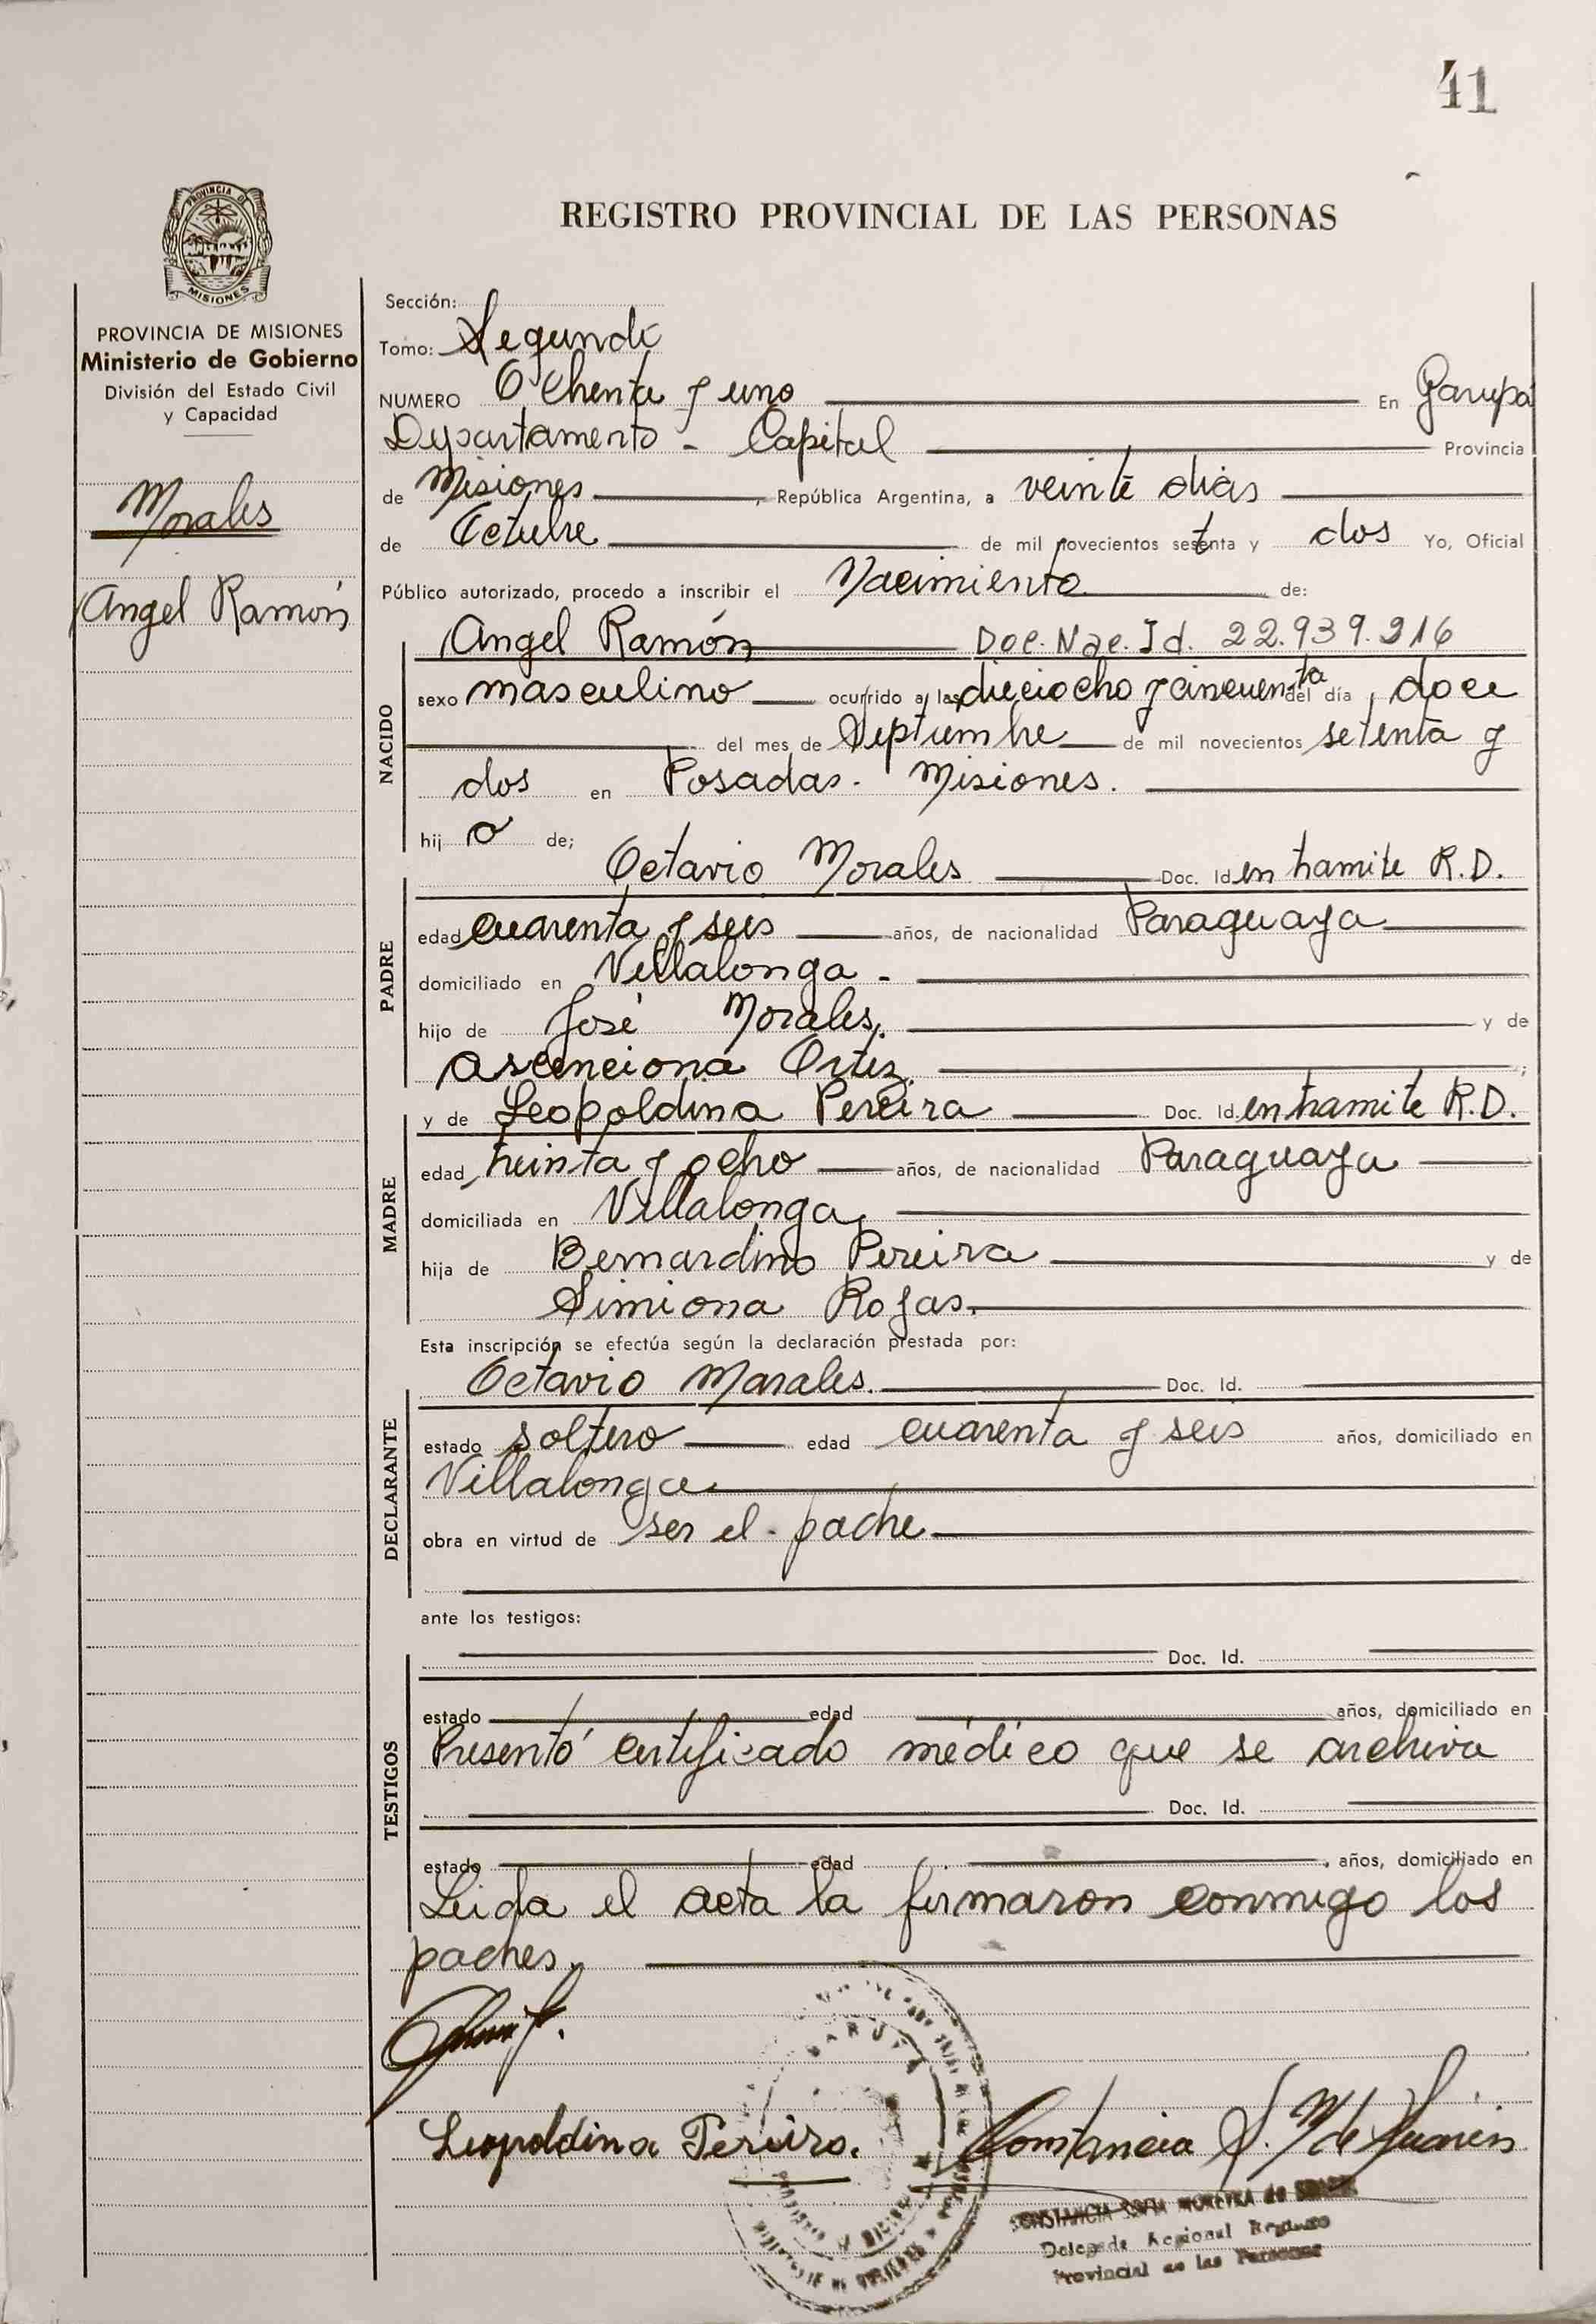 41
PROVINCIA DE
MISIONES
REGISTRO PROVINCIAL DE LAS PERSONAS
PROVINCIA DE MISIONES
Ministerio de Gobierno
División del Estado Civil
y Capacidad
Morales
Angel Ramón
Sección:
Tomo: Segundo
NUMERO Ochenta y uno En Garupá
Departamento - Capital Provincia
de Misiones, República Argentina, a veinte dias
de Octubre de mil novecientos setenta y dos Yo, Oficial
Público autorizado, procedo a inscribir el Nacimiento de:
NACIDO
Angel Ramón Doc. Nac. Id. 22.939.216
sexo masculino ocurrido a las dieciocho y cincuenta del día doce
del mes de Septiembre de mil novecientos setenta y
dos en Posadas. Misiones.
hij o de;
PADRE
Octavio Morales Doc. Id. en tramite R.D.
edad cuarenta y seis años, de nacionalidad Paraguaya
domiciliado en Villalonga -
hijo de José Morales. y de
Ascenciona Ortiz.
MADRE
y de Leopoldina Pereira Doc. Id. en tramite R.D.
edad treinta y ocho años, de nacionalidad Paraguaya
domiciliada en Villalonga
hija de Bernardino Pereira y de
Simiona Rojas.
Esta inscripción se efectúa según la declaración prestada por:
DECLARANTE
Octavio Morales. Doc. Id.
estado soltero edad cuarenta y seis años, domiciliado en
Villalonga.
obra en virtud de ser el padre
ante los testigos:
TESTIGOS
Doc. Id.
estado edad años, domiciliado en
Presentó certificado médico que se archiva
Doc. Id.
estado edad , años, domiciliado en
Leida el acta la firmaron conmigo los
padres.
GARUPA
Leopoldina Pereira. Constancia S. M de Suarez
CONSTANCIA SOFIA MOREYRA de
Delegada Regional Registro
Provincial de las Personas